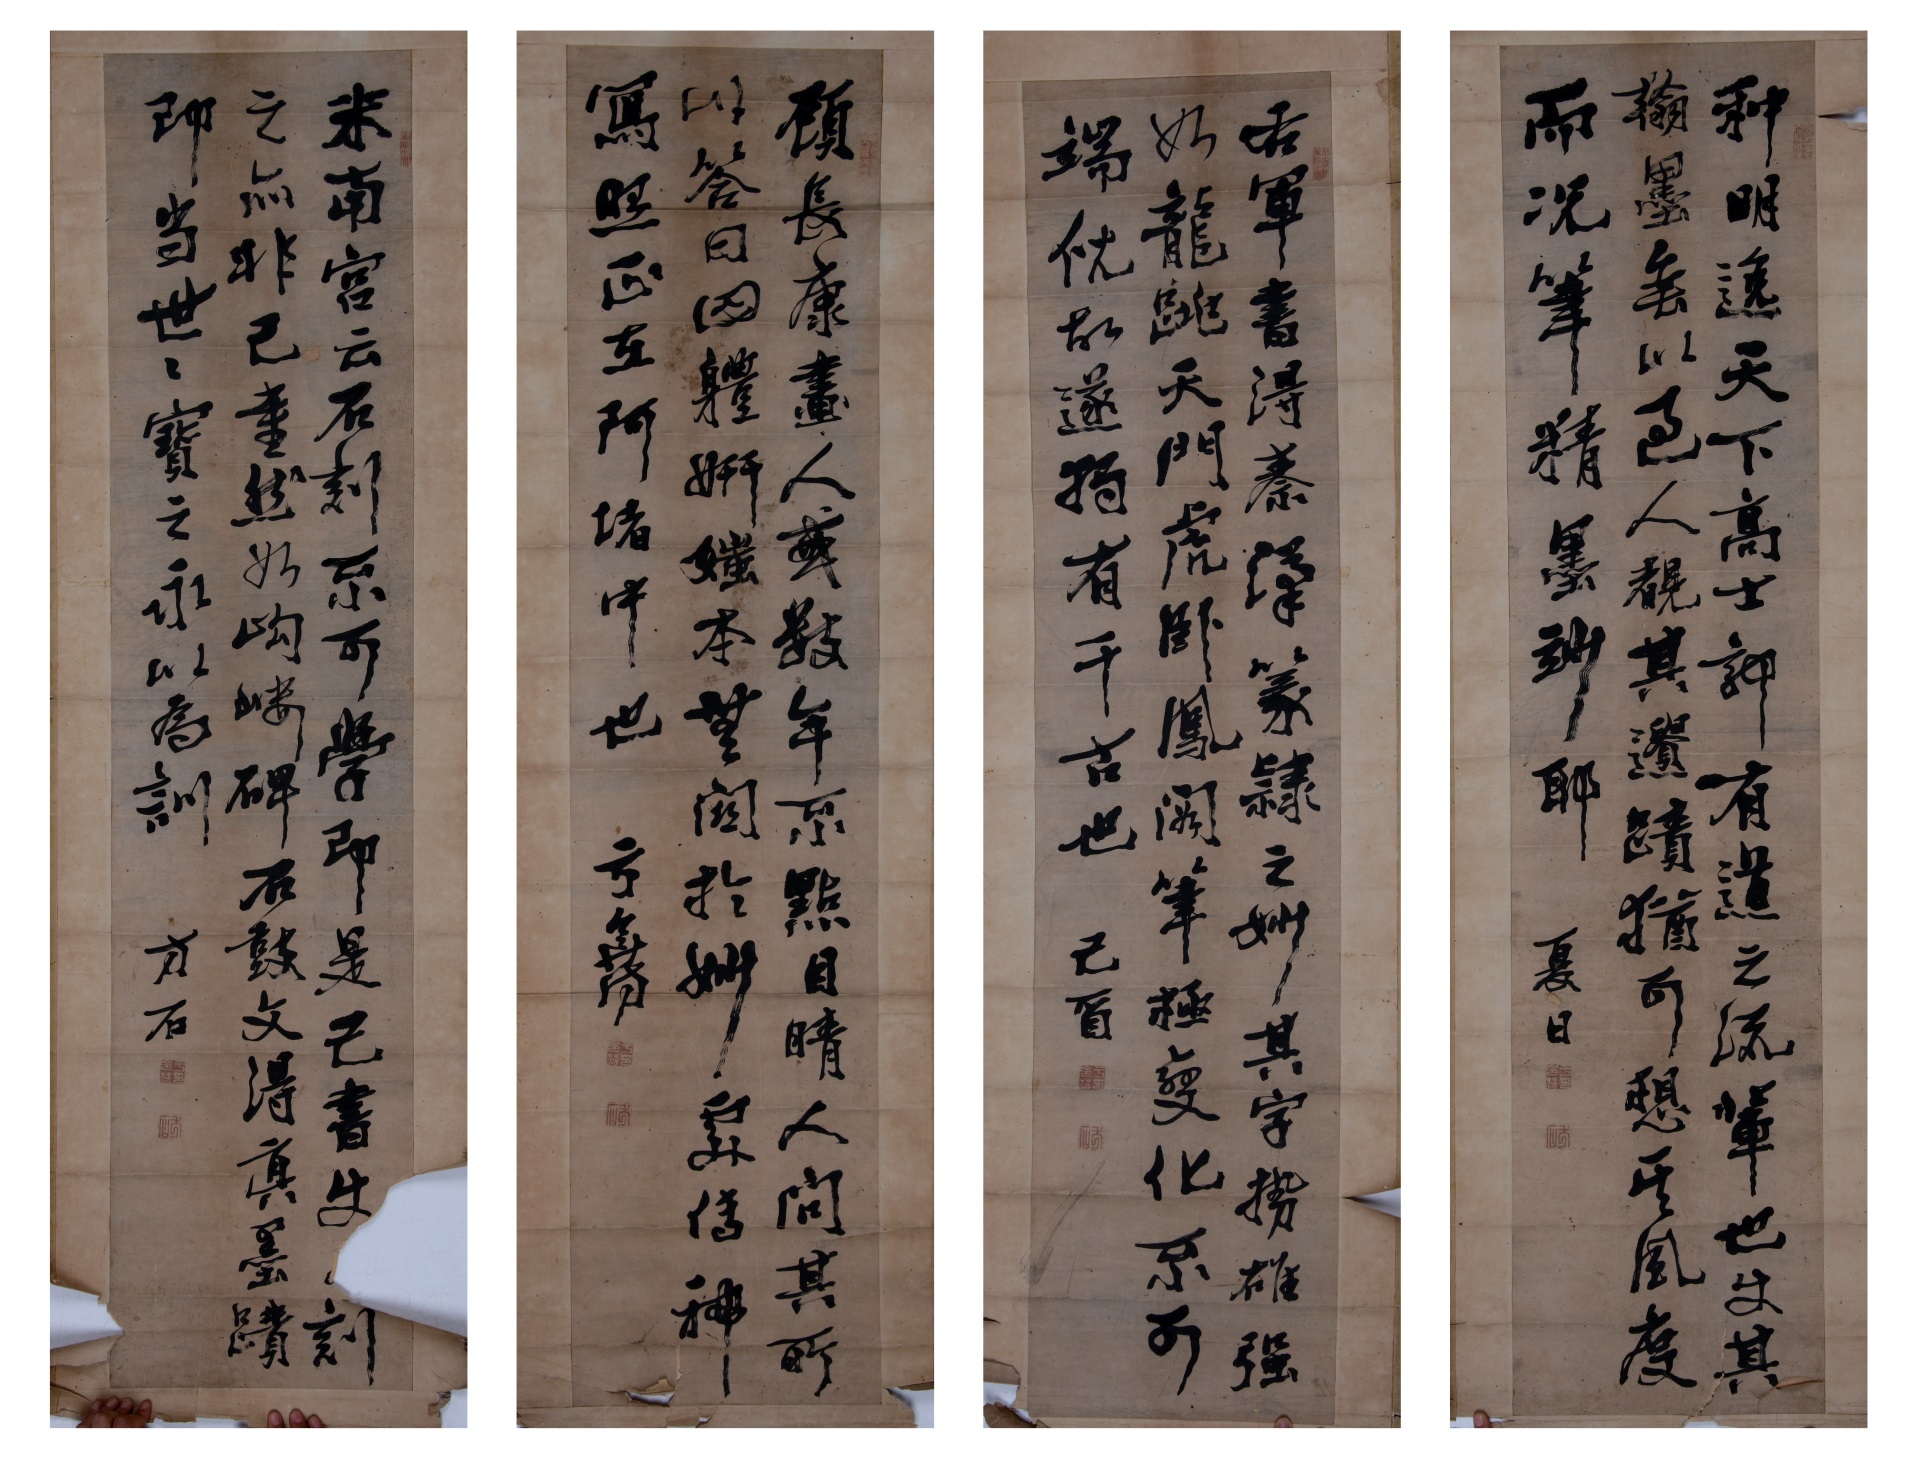 种明逸天下高士有道之流輩也使其
翰墨無以過人觀其遺蹟猶可想其風度
而况筆精墨妙耶
夏日
右軍書得秦漢篆隸之妙其字勢雄强
如龍跳天門虎卧鳳閣筆極變化不可
端倪故遂獨有千古也
己酉
顧長康畫人或數年不點目睛人問其所
以答曰四體妍媸本無關於妙處傳神
寫照正在阿堵中也
米南宮云石刻不可學即是己書使刻
之亦非己書然如岣嶁碑石鼓文得真墨蹟
即當世〻寶之永以為訓
方石